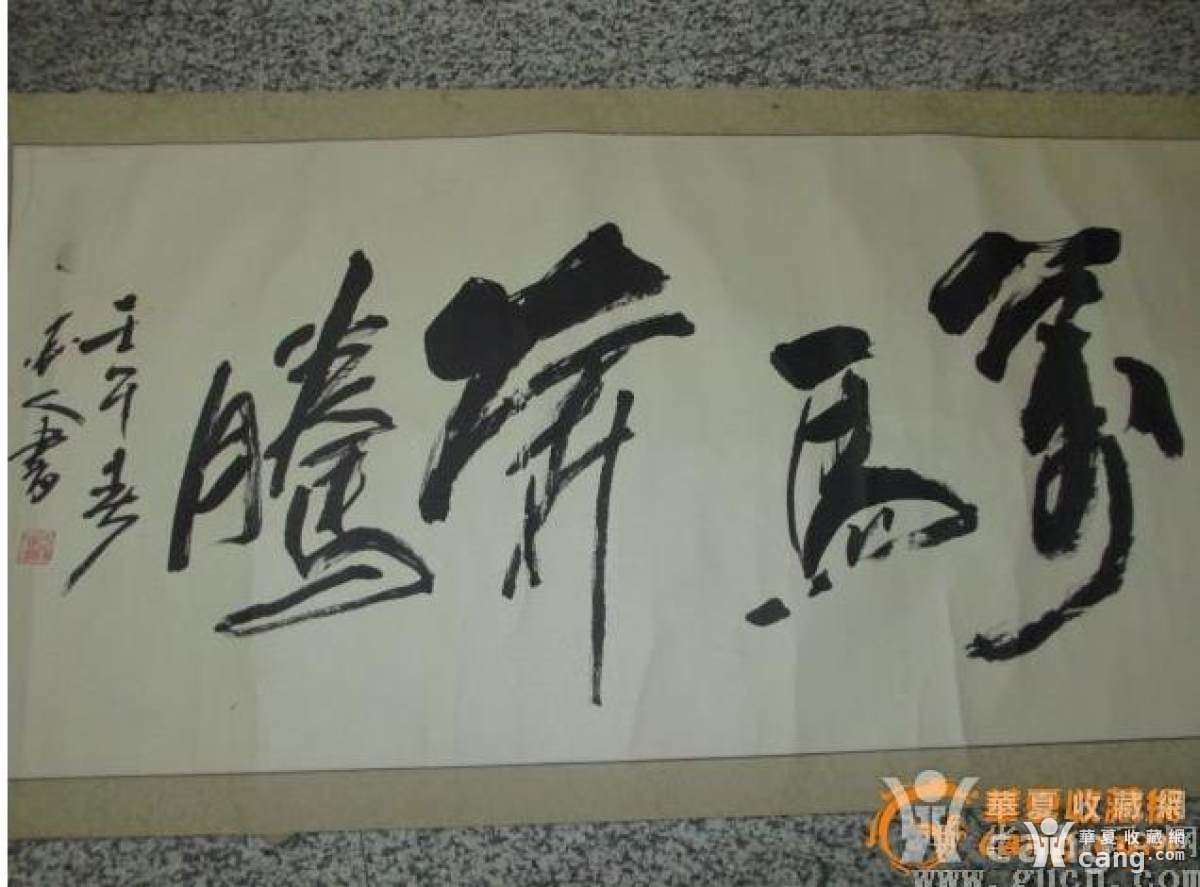 萬馬奔騰
壬午春
人書
華夏收藏網
華夏收藏網
cang.com